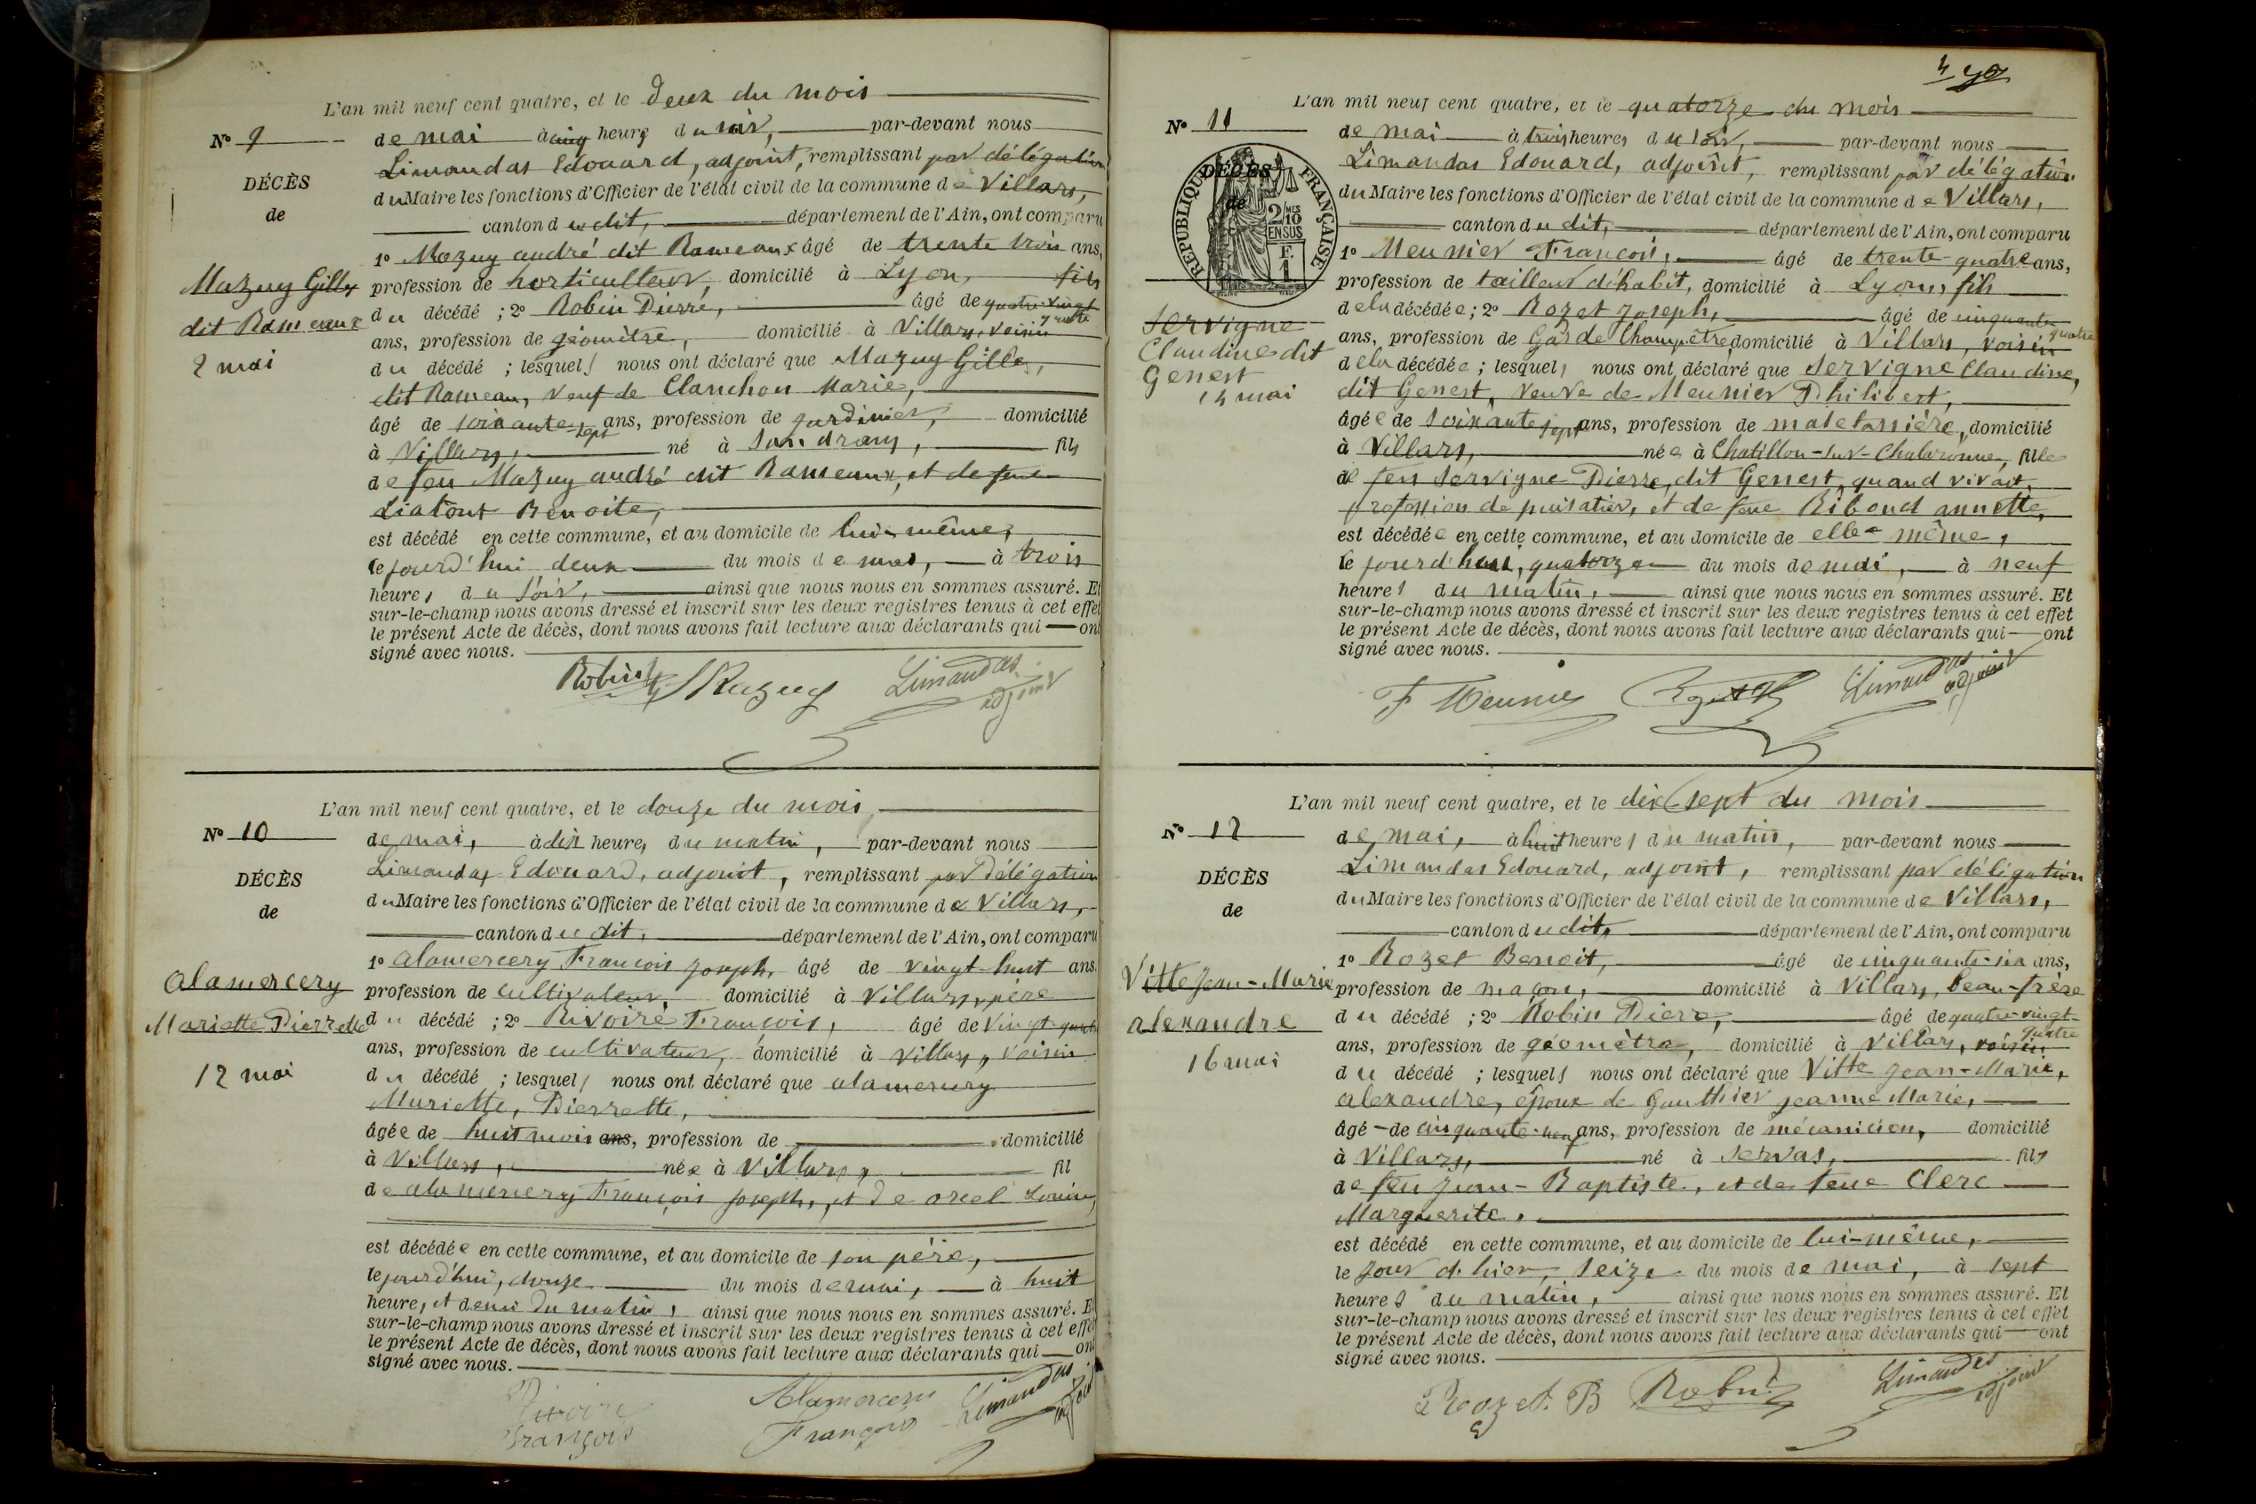 L'an mil neuf cent quatre, et le deux du mois
N° 9
de mai à cinq heures du soir, par-devant nous
Limandas Edouard, adjoint, remplissant par délégation
DÉCÈS
du Maire les fonctions d'Officier de l'état civil de la commune de Villars,
de
canton du dit, département de l'Ain, ont comparu
1° Mazuy andré dit Rameaux âgé de trente trois ans,
Mazuy Gilles
profession de horticulteur, domicilié à Lyon, fils
dit Rameaux
du décédé ; 2° Robin Pierre, âgé de quatre-vingt
quatre
2 mai
ans, profession de géomètre, domicilié à Villars, voisin
du décédé ; lesquels nous ont déclaré que Mazuy Gilles,
dit Rameau, veuf de Clanchon Marie,
âgé de soixante-sept ans, profession de jardinier, domicilié
à Villars, né à Sandrans, fils
de feu Mazuy andré dit Rameaux, et de feue
Liatout Benoite,
est décédé en cette commune, et au domicile de lui-même,
le jourd'hui deux du mois de mai, à trois
heures du soir, ainsi que nous nous en sommes assuré. Et
sur-le-champ nous avons dressé et inscrit sur les deux registres tenus à cet effet
le présent Acte de décès, dont nous avons fait lecture aux déclarants qui ont
signé avec nous.
Robin Mazuy Limandas adjoint
L'an mil neuf cent quatre, et le douze du mois
N° 10
de mai, à dix heures du matin, par-devant nous
Limandas Edouard, adjoint, remplissant par Délégation
DÉCÈS
du Maire les fonctions d'Officier de l'état civil de la commune de Villars,
de
canton du dit, département de l'Ain, ont comparu
1° alamercery François Joseph, âgé de vingt-huit ans
alamercery
profession de cultivateur, domicilié à Villars, père
Mariette Pierrette
du décédé ; 2° Rivoire François, âgé de vingt-quatre
ans, profession de cultivateur, domicilié à Villars, voisin
12 mai
du décédé ; lesquels nous ont déclaré que alamercery
Mariette, Pierrette,
âgée de huit mois ans, profession de domicilié
à Villars, née à Villars, fil
de alamercery François Joseph, et de orcel Louise,
est décédée en cette commune, et au domicile de son père,
le jourd'hui, douze du mois de mai, à huit
heures et demie du matin, ainsi que nous nous en sommes assuré. Et
sur-le-champ nous avons dressé et inscrit sur les deux registres tenus à cet effet
le présent Acte de décès, dont nous avons fait lecture aux déclarants qui ont
signé avec nous.
Rivoire François Alamercery François Limandas adjoint
4
L'an mil neuf cent quatre, et le quatorze du mois
N° 11
de mai à trois heures du soir, par-devant nous
DÉCÈS
Limandas Edouard, adjoint, remplissant par délégation
de
du Maire les fonctions d'Officier de l'état civil de la commune de Villars,
RÉPUBLIQUE FRANÇAISE
2/10 MES EN SUS
F. 1
canton du dit, département de l'Ain, ont comparu
1° Meunier François, âgé de trente-quatre ans,
profession de tailleur d'habit, domicilié à Lyon, fils
Servigne
de la décédée ; 2° Rozet Joseph, âgé de cinquante-
quatre
Claudine dit
ans, profession de Garde Champêtre, domicilié à Villars, voisin
Genest
de la décédée ; lesquels nous ont déclaré que Servigne Claudine,
14 mai
dit Genest, veuve de Meunier Philibert,
âgée de soixante sept ans, profession de matelassière, domicilié
à Villars, née à Chatillon-sur-Chalaronne, fille
de feu Servigne Pierre, dit Genest, quand vivait,
profession de puisatier, et de feue Riboud annette,
est décédée en cette commune, et au domicile de elle-même,
le jourd'hui, quatorze du mois de mai, à neuf
heures du matin, ainsi que nous nous en sommes assuré. Et
sur-le-champ nous avons dressé et inscrit sur les deux registres tenus à cet effet
le présent Acte de décès, dont nous avons fait lecture aux déclarants qui ont
signé avec nous.
F Meunier Rozet Limandas adjoint
L'an mil neuf cent quatre, et le dix-sept du mois
N° 12
de mai, à huit heures du matin, par-devant nous
Limandas Edouard, adjoint, remplissant par délégation
DÉCÈS
du Maire les fonctions d'Officier de l'état civil de la commune de Villars,
de
canton du dit, département de l'Ain, ont comparu
1° Rozet Benoit, âgé de cinquante-six ans,
Vitte Jean-Marie
profession de maçon, domicilié à Villars, beau-frère
alexandre
du décédé ; 2° Robin Pierre, âgé de quatre-vingt-
quatre
16 mai
ans, profession de géomètre, domicilié à Villars, voisin
du décédé ; lesquels nous ont déclaré que Vitte Jean-Marie,
alexandre, époux de Gauthier Jeanne Marie,
âgé de cinquante-neuf ans, profession de mécanicien, domicilié
à Villars, né à Servas, fils
de feu Jean-Baptiste, et de feue Clerc
Marguerite,
est décédé en cette commune, et au domicile de lui-même,
le jour d'hier, seize du mois de mai, à sept
heures du matin, ainsi que nous nous en sommes assuré. Et
sur-le-champ nous avons dressé et inscrit sur les deux registres tenus à cet effet
le présent Acte de décès, dont nous avons fait lecture aux déclarants qui ont
signé avec nous.
Rozet. B Robin Limandas adjoint